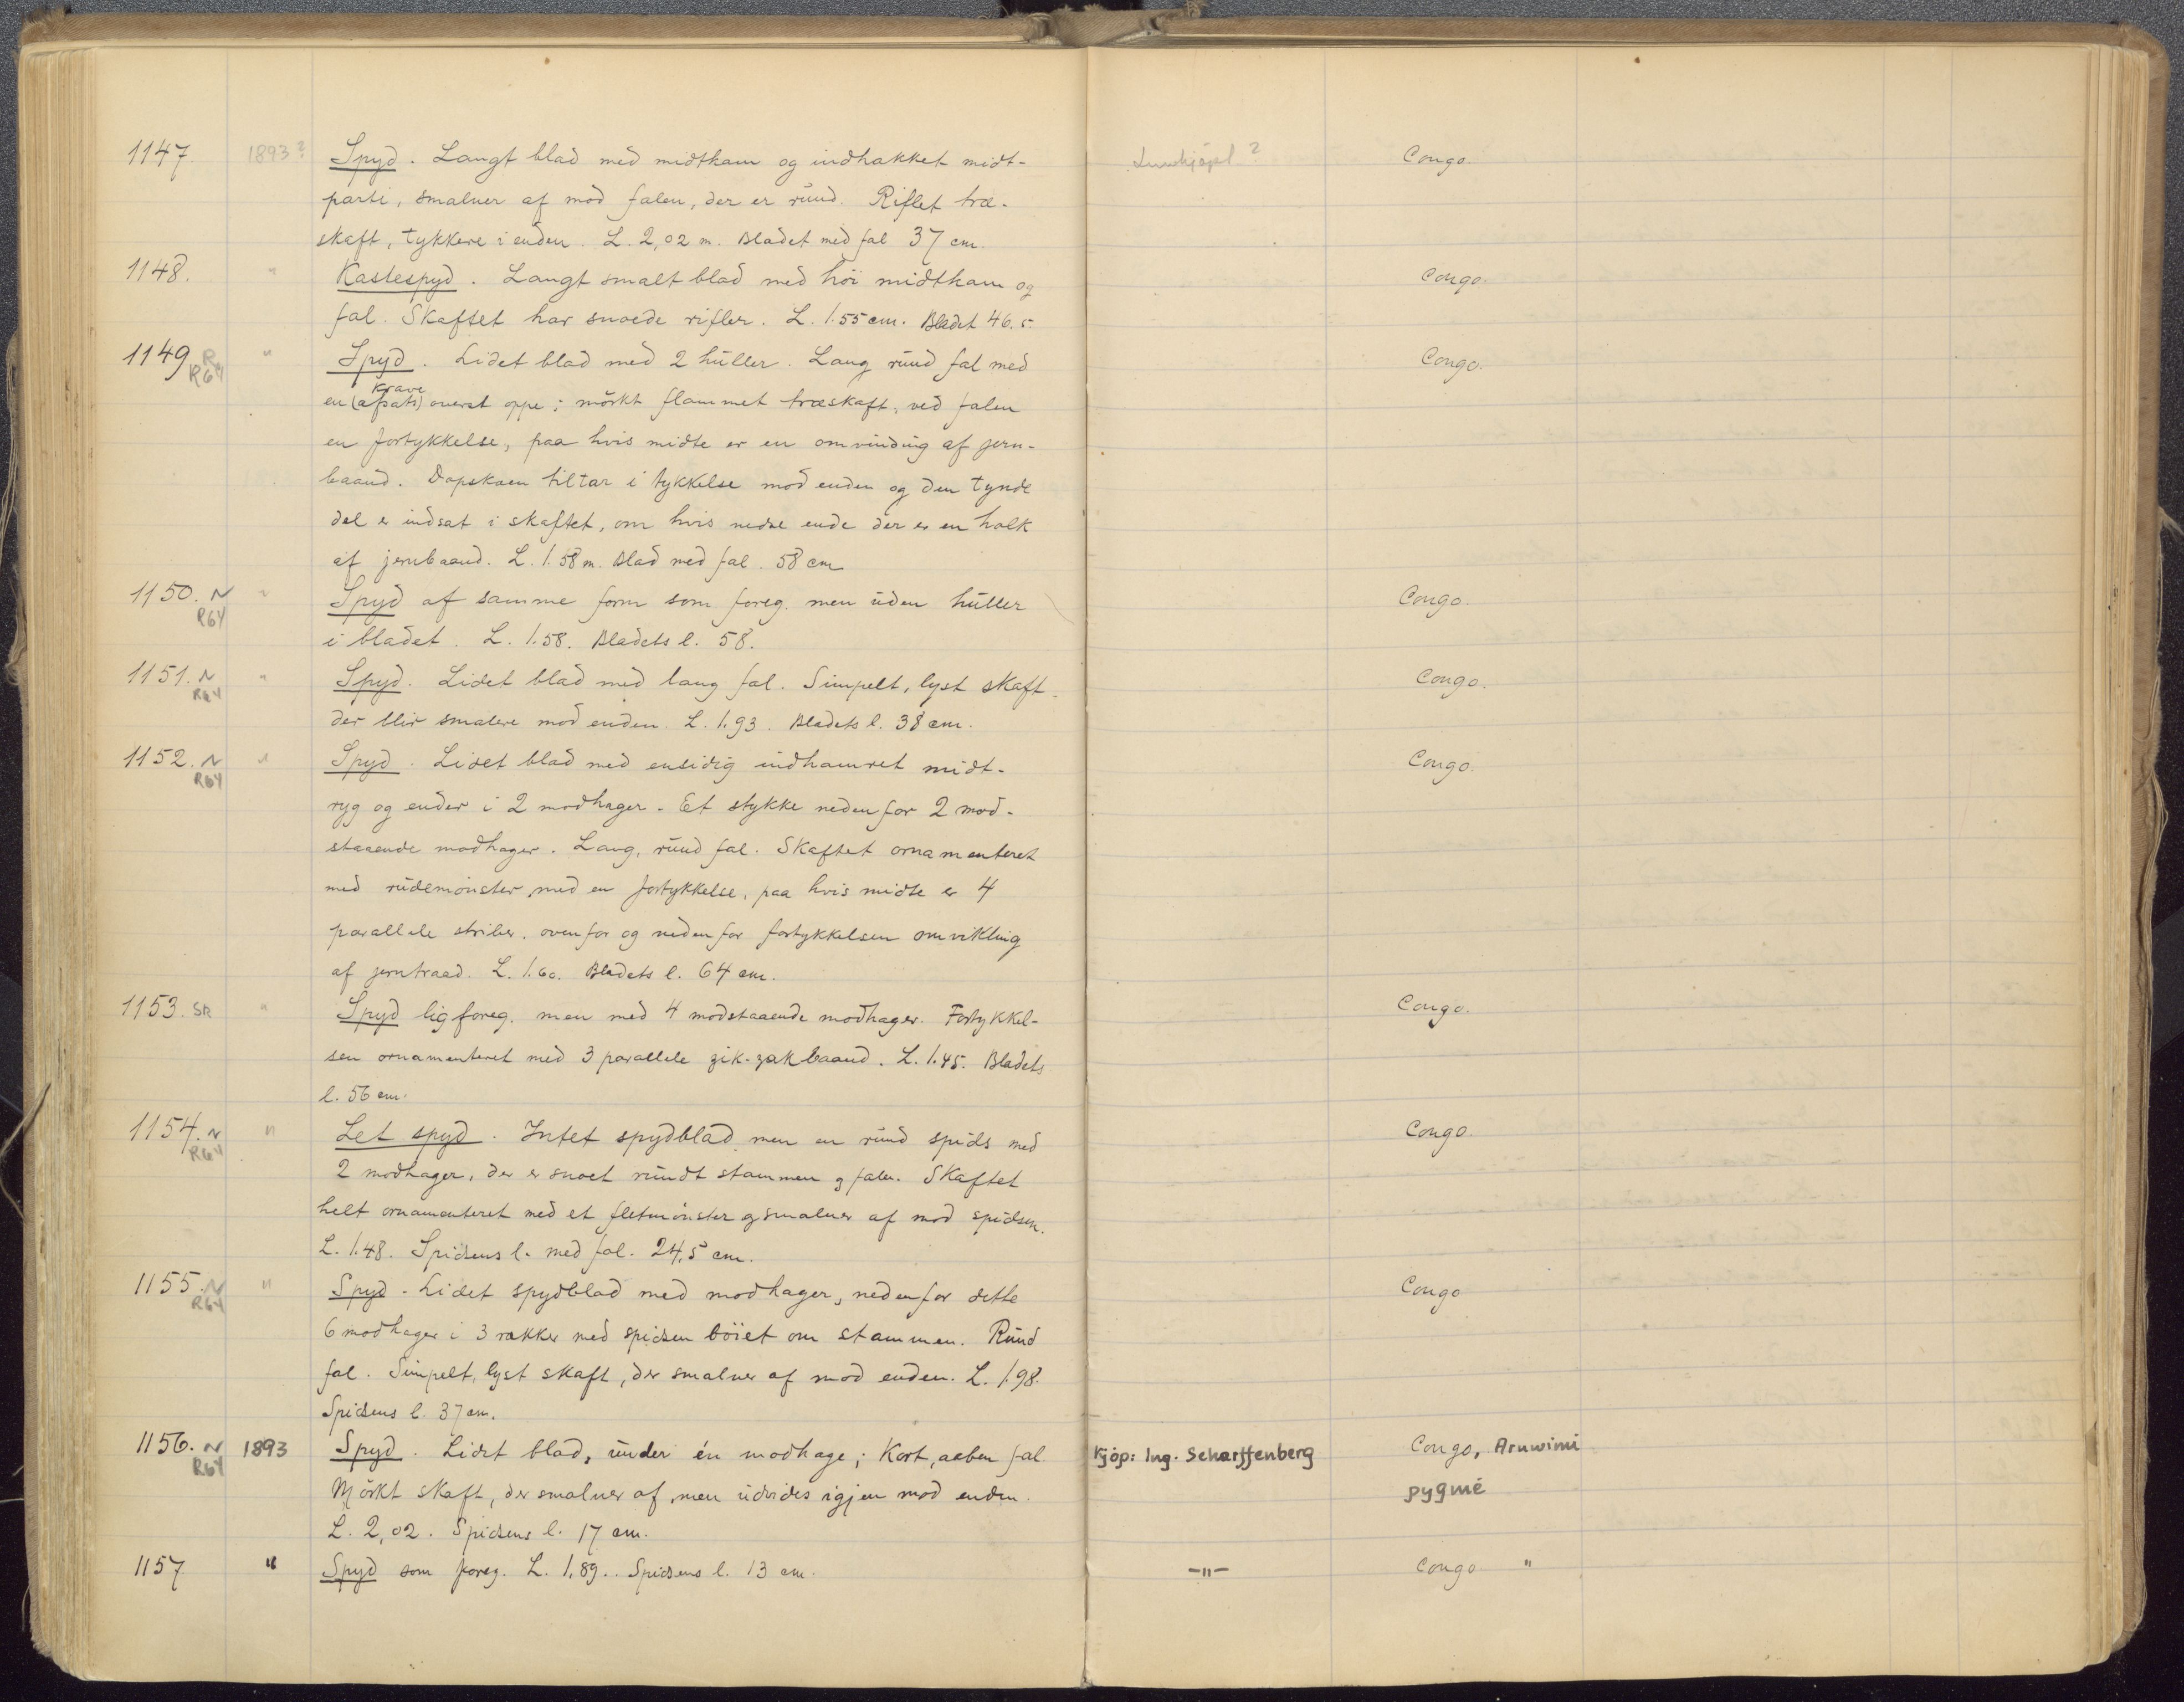 1147 1893? Spyd. Langt blad med midtkam og indhakket midt- Congo.
parti, smalner af mod falen, der er rund. Riflet træ-
skaft, tykkere i enden. L. 2,02 m. Bladet med fal 37 cm.
1148. " Kastespyd. Langt smalt blad med höi midtkam og Congo.
fal. Skaftet har snoede rifler. L. 1.55 cm. Bladet 46.5.
1149 R " Spyd. Lidet blad med 2 huller. Lang rund fal med Congo.
R64
krave
en (afsats) øverst oppe; mörkt flammet træskaft, ved falen
en fortykkelse, paa hvis midte er en omvinding af jern-
baand. Dopskoen tiltar i tykkelse mod enden og den tynde
del er indsat i skaftet, om hvis nedre ende der er en holk
af jernbaand. L. 1.58 m. Blad med fal. 58 cm
1150. N " Spyd af samme form som foreg. men uden huller Congo.
R64
i bladet. L. 1.58. Bladets l. 58.
1151. N " Spyd. Lidet blad med lang fal. Simpelt, lyst skaft Congo.
R64
der blir smalere mod enden. L. 1.93. Bladets l. 38 cm.
1152. N " Spyd. Lidet blad med ensidig indhamret midt- Congo.
R64
ryg og ender i 2 modhager. Et stykke nedenfor 2 mod-
staaende modhager. Lang, rund fal. Skaftet ornamenteret
med rudemönster, med en fortykkelse, paa hvis midte er 4
parallele striber. ovenfor og nedenfor fortykkelsen omvikling
af jerntraad. L. 1.60. Bladets l. 64 cm.
1153. SR " Spyd lig foreg. men med 4 modstaaende modhager. Fortykkel- Congo.
sen ornamenteret med 3 parallele zik-zakbaand. L. 1.45. Bladets
l. 56 cm.
1154. N " Let spyd. Intet spydblad men en rund spids med Congo.
R64
2 modhager, der er snoet rundt stammen og falen. Skaftet
helt ornamenteret med et fletmönster og smalner af mod spidsen.
L. 1.48. Spidsens l. med fal. 24,5 cm.
1155. N " Spyd. Lidet spydblad med modhager, nedenfor dette Congo
R64
6 modhager i 3 rækker med spidsen böiet om stammen. Rund
fal. Simpelt, lyst skaft, der smalner af mod enden. L. 1.98.
Spidsens l. 37 cm.
1156. N 1893 Spyd. Lidet blad, under én modhage; Kort, aaben fal Kjöp: Ing. Scharffenberg Congo, Aruwimi
R64
Mörkt skaft, der smalner af, men udvides igjen mod enden. pygmé
L. 2,02. Spidsens l. 17 cm.
1157. " Spyd som foreg. L. 1,89. Spidsens l. 13 cm. -"- Congo. "